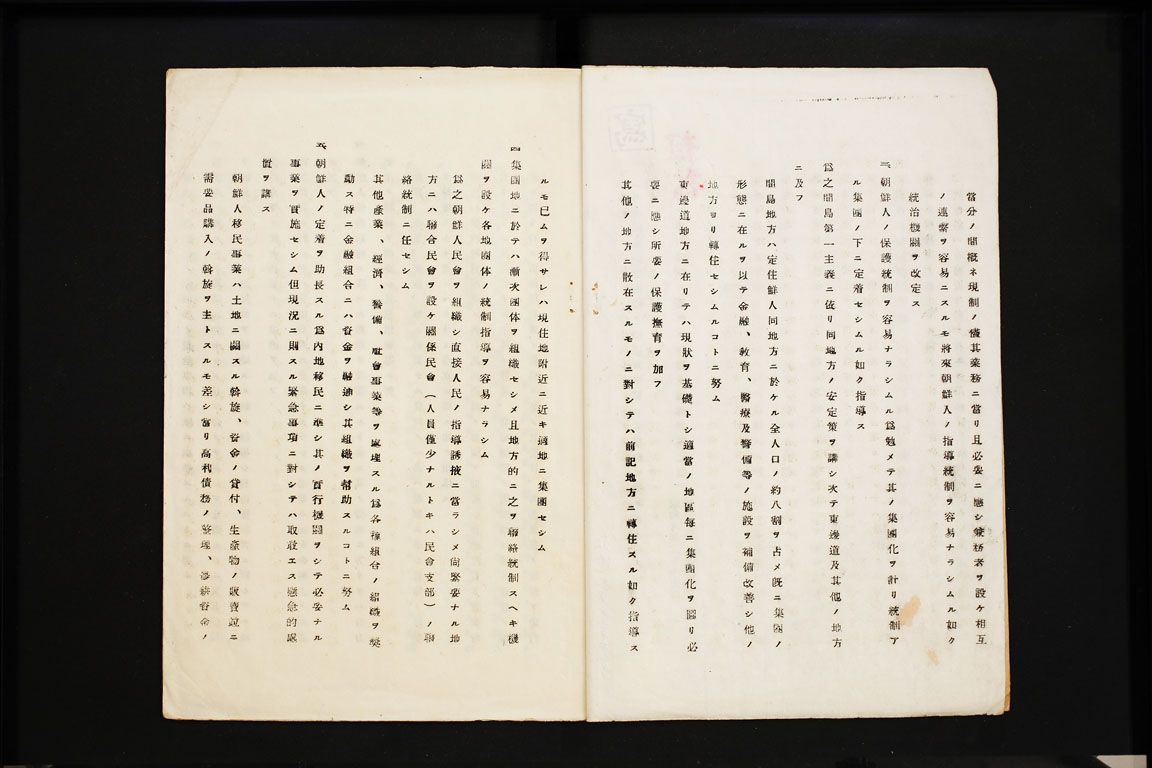 當分ノ間概ネ現制ノ儘其業務ニ當リ且必要ニ應シ兼務者ヲ設ケ相互
ノ連繫ヲ容易ニスルモ將來朝鮮人ノ指導統制ヲ容易ナラシムル如ク
統治機關ヲ改定ス
三、朝鮮人ノ保護統制ヲ容易ナラシムル爲勉メテ其ノ集團化ヲ計リ統制ア
ル集團ノ下ニ定着セシムル如ク指導ス
爲之間島第一主義ニ依リ同地方ノ安定策ヲ講シ次テ東邊道及其他ノ地方
ニ及フ
間島地方ハ定住鮮人同地方ニ於ケル全人口ノ約八割ヲ占メ既ニ集團ノ
形態ニ在ルヲ以テ金融、敎育、醫療及警備等ノ施設ヲ補備改善シ他ノ
地方ヨリ轉住セシムルコトニ努ム
東邊道地方ニ在リテハ現狀ヲ基礎トシ適當ノ地區每ニ集團化ヲ圖リ必
要ニ應シ所要ノ保護撫育ヲ加フ
其他ノ地方ニ散在スルモノニ對シテハ前記地方ニ轉住スル如ク指導ス
ルモ已ムヲ得サレハ現住地附近ニ近キ適地ニ集團セシム
四、集團地ニ於テハ漸次團体ヲ組織セシメ且地方的ニ之ヲ聯絡統制スヘキ機
關ヲ設ケ各地團体ノ統制指導ヲ容易ナラシム
爲之朝鮮人民會ヲ組織シ直接人民ノ指導誘掖ニ當ラシメ尙緊要ナル地
方ニハ聯合民會ヲ設ケ關係民會（人員僅少ナルトキハ民會支部）ノ聯
絡統制ニ任セシム
其他產業、經濟、警備、社會事業等ヲ處理スル爲各種組合ノ組織ヲ奬
勵ス特ニ金融組合ニハ資金ヲ融通シ其組織ヲ幇助スルコトニ努ム
五、朝鮮人ノ定着ヲ助長スル爲內地移民ニ準シ其ノ實行機關ヲシテ必要ナル
事業ヲ實施セシム但現況ニ則スル緊急事項ニ對シテハ取敢エス應急的處
置ヲ講ス
朝鮮人移民事業ハ土地ニ關スル斡旋、資金ノ貸付、生產物ノ販賣並ニ
需要品購入ノ斡旋ヲ主トスルモ差シ當リ高利債務ノ整理、營耕資金ノ